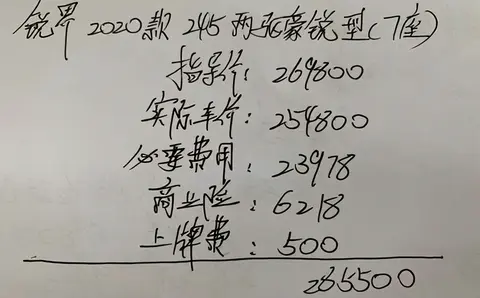 锐界 2020款 245 两驱豪锐型(7座)
指导价: 269800
实际车价: 254800
必要费用: 23978
商业险: 6218
上牌费: 500
285500